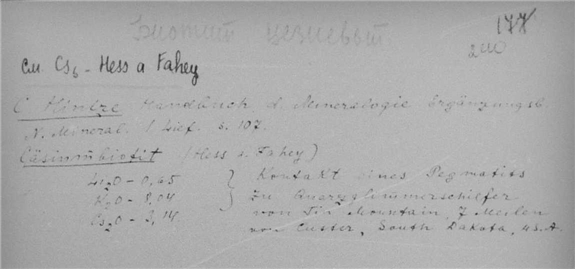 Биотит цезиевый
177
2110
См. Cs₆ - Hess a Fahey
C. Hintze Handbuch d. Mineralogie Ergänzungsb.
N. Mineral. 1 Lief. s. 107.
Cäsiumbiotit (Hess u. Fahey)
Li₂O - 0,65 } Kontakt eines Pegmatits
K₂O - 8,04 zu Quarzglimmerschiefer
Cs₂O - 3,14 von Tin Mountain, 7 Meilen
von Custer, South Dakota, U.S.A.